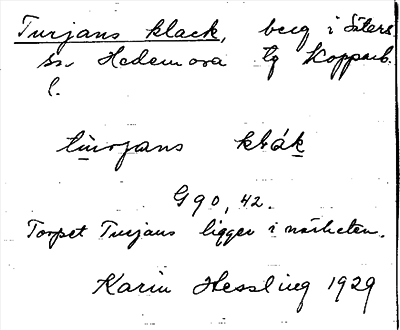 Turjans klack, berg i Säters
sn Hedemora tg Kopparb.
l.
tùrjans klák
G 90, 42.
Torpet Turjans ligger i närheten.
Karin Hessling 1929